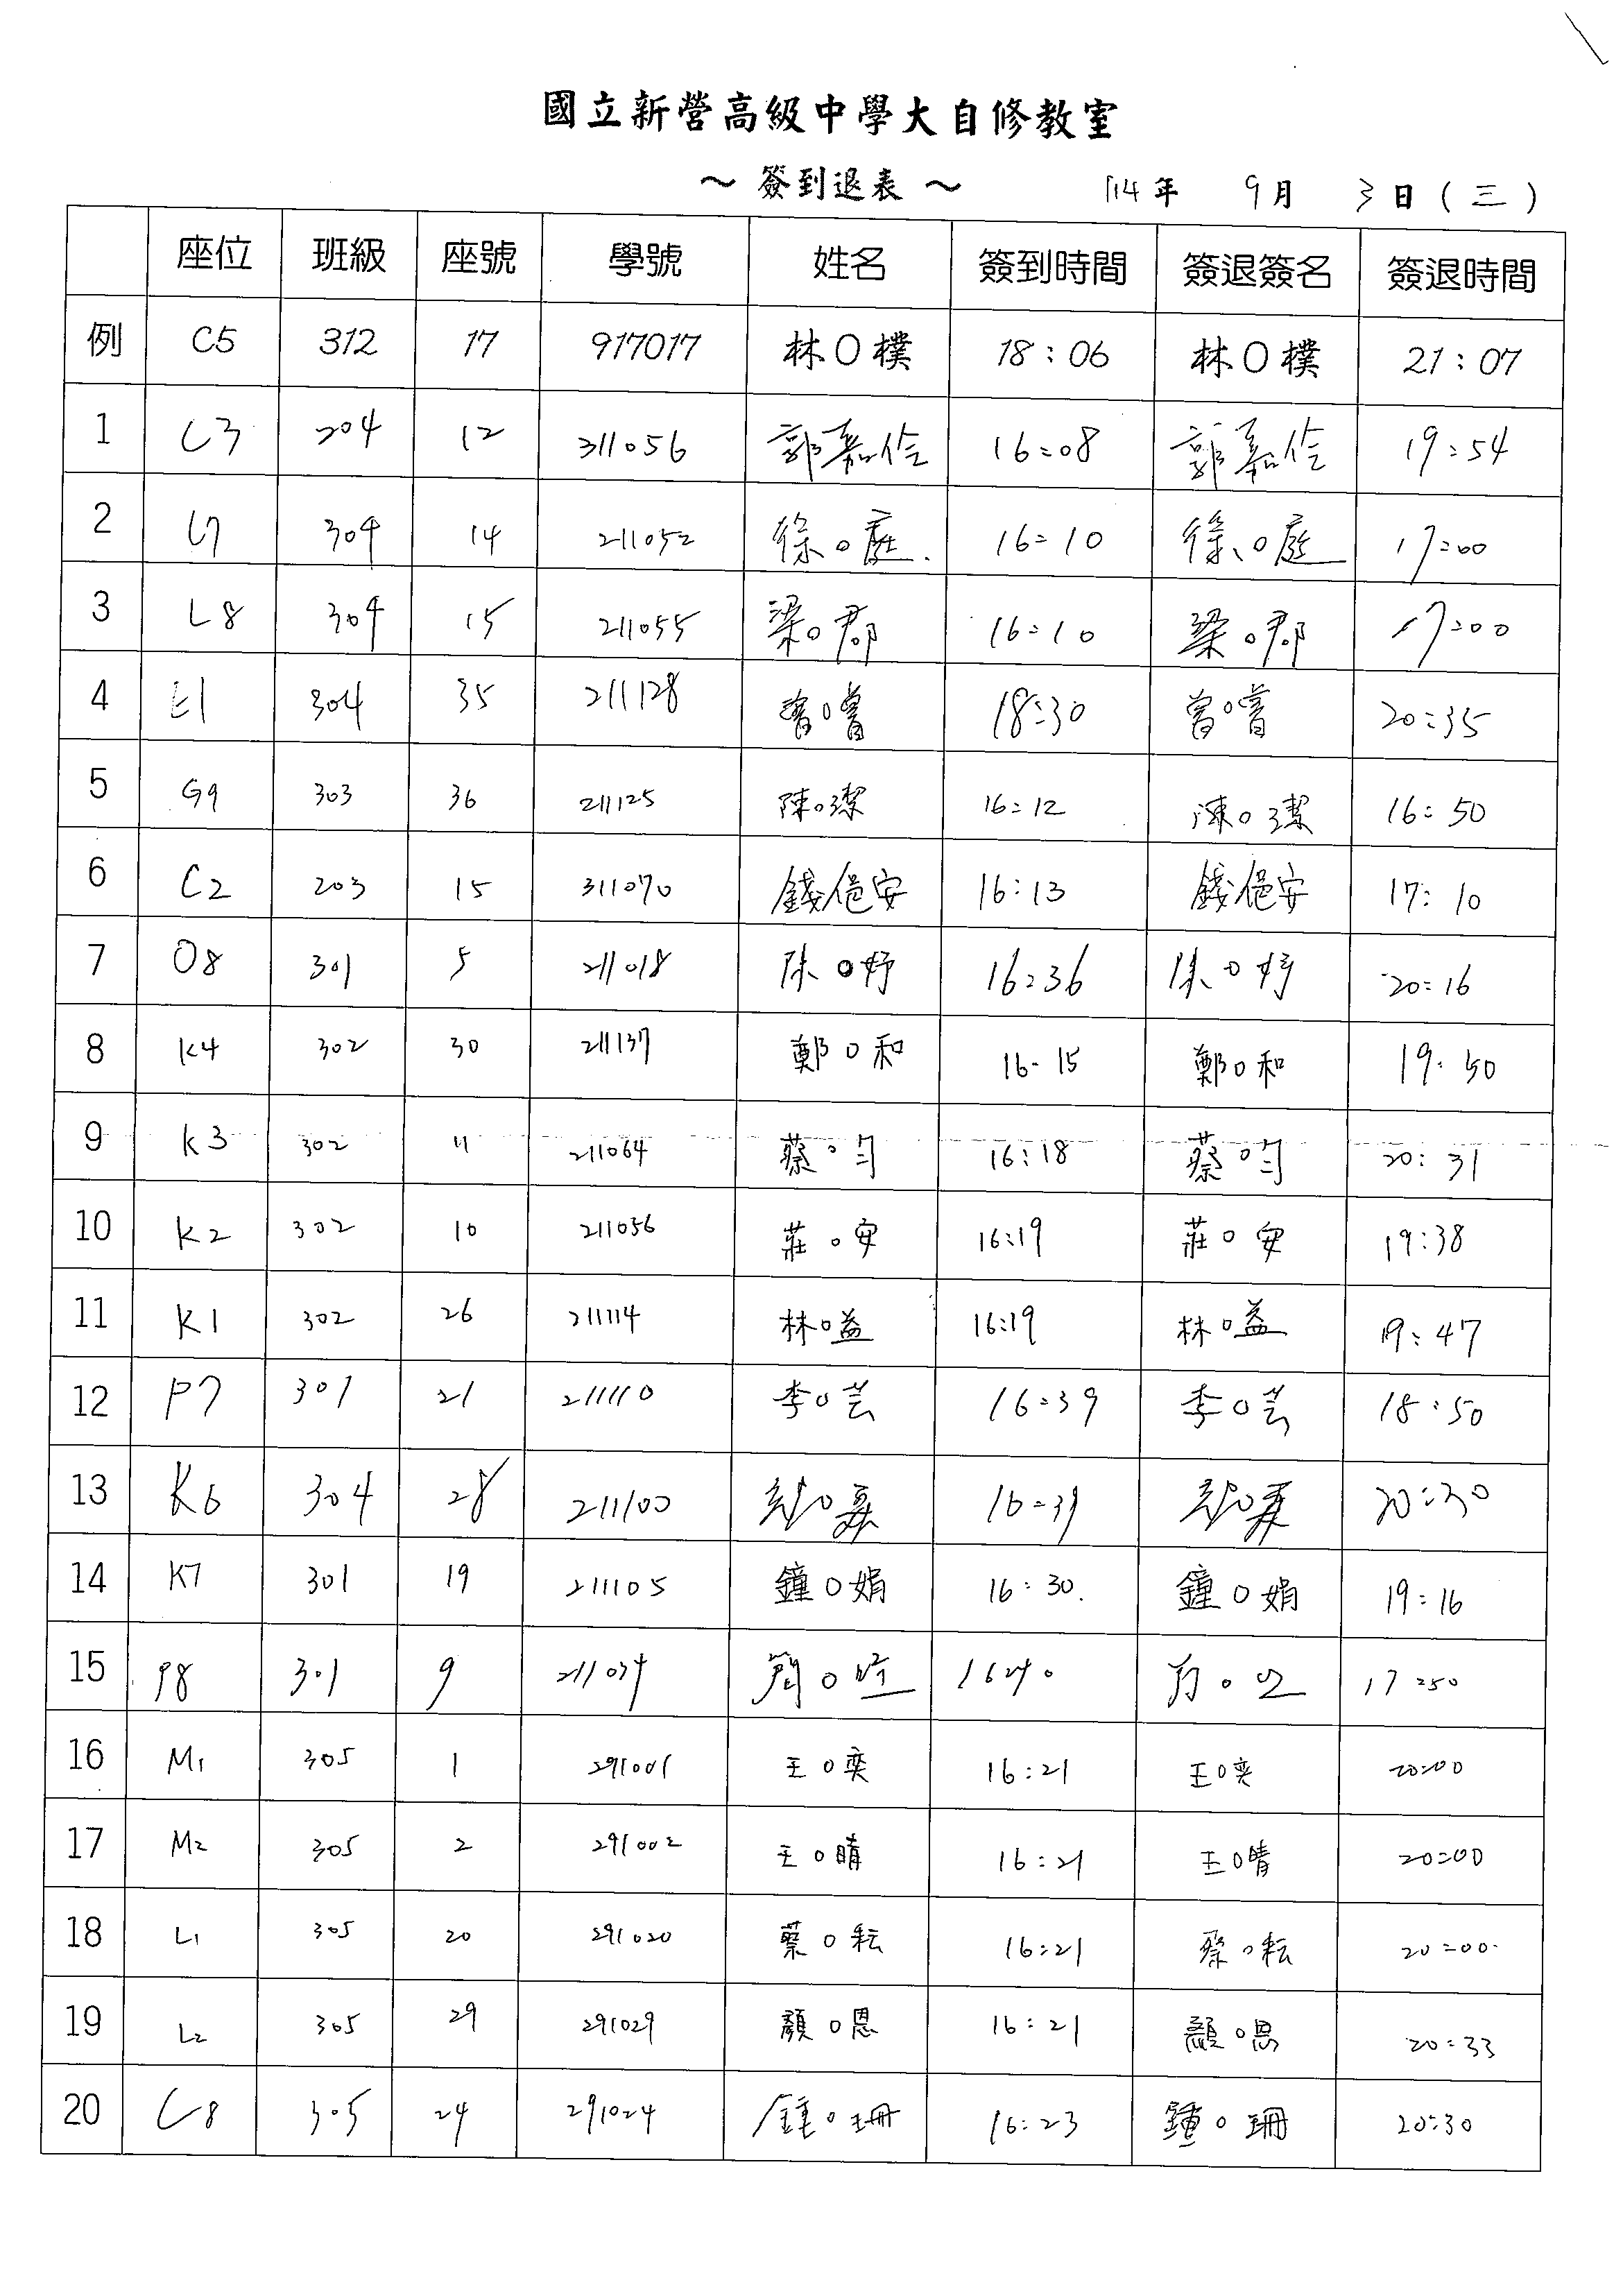 國立新營高級中學大自修教室
~ 簽到退表 ~ 114年 9月 3日 (三)
座位 班級 座號 學號 姓名 簽到時間 簽退簽名 簽退時間
例 C5 312 17 917017 林O樸 18:06 林O樸 21:07
1 C3 204 12 311056 郭嘉伶 16:08 郭嘉伶 19:54
2 L7 304 14 211052 徐O庭 16:10 徐O庭 17:00
3 L8 304 15 211055 梁O郡 16:10 梁O郡 17:00
4 E1 304 35 211128 曾O 18:30 曾O 20:35
5 G9 303 36 211125 陳O潔 16:12 陳O潔 16:50
6 C2 203 15 311070 錢俋安 16:13 錢俋安 17:10
7 O8 301 5 211018 陳O妤 16:36 陳O妤 20:16
8 K4 302 30 211137 鄭O和 16-15 鄭O和 19:50
9 K3 302 11 211064 蔡O勻 16:18 蔡O勻 20:31
10 K2 302 10 211056 莊O安 16:19 莊O安 19:38
11 K1 302 26 211114 林O益 16:19 林O益 19:47
12 P7 301 21 211110 李O芸 16:39 李O芸 18:50
13 K6 304 28 211100 16:39 20:30
14 K7 301 19 211105 鐘O娟 16:30 鐘O娟 19:16
15 P8 301 9 211034 簡O 1640 17:50
16 M1 305 1 291001 王O奕 16:21 王O奕 20:00
17 M2 305 2 291002 王O晴 16:21 王O晴 20:00
18 L1 305 20 291020 蔡O耘 16:21 蔡O耘 20:00
19 L2 305 29 291029 顏O恩 16:21 顏O恩 20:33
20 C8 305 24 291024 鍾O珊 16:23 鍾O珊 20:30